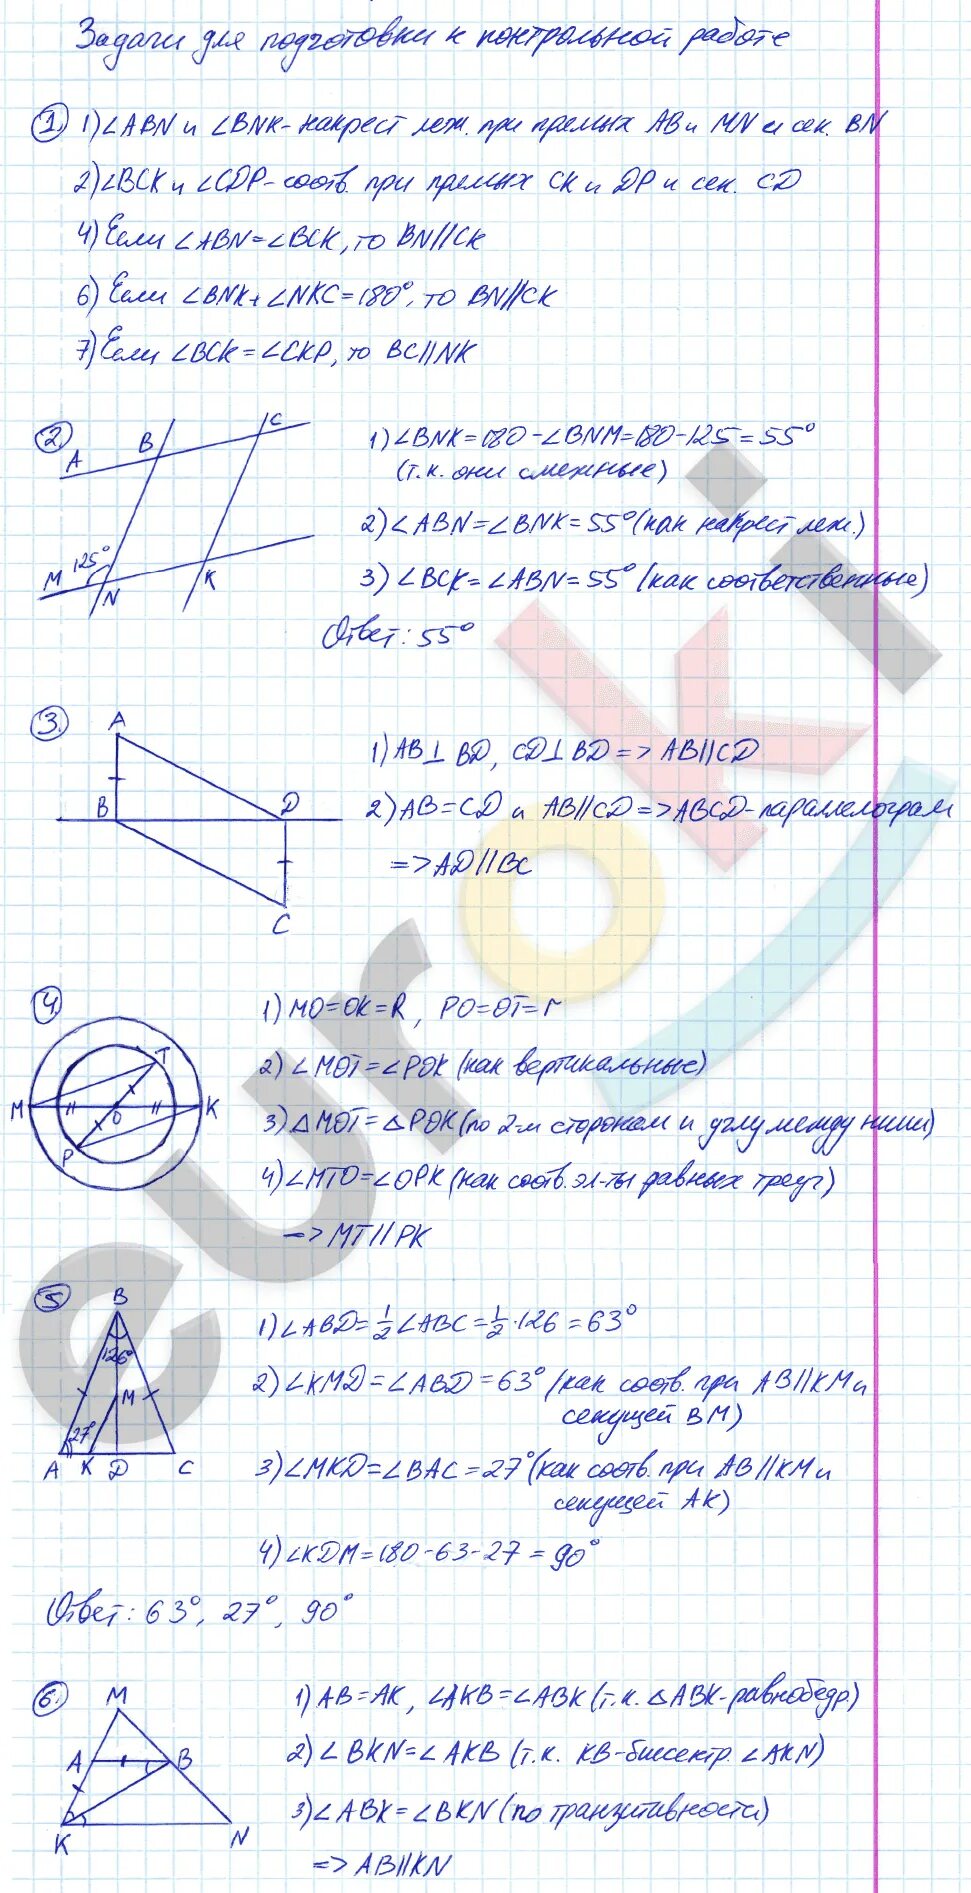 Задачи для подготовки к контрольной работе
1. 1) ∠ABN и ∠BNK - накрест леж. при прямых AB и MN и сек. BN
2) ∠BCK и ∠CDP - соотв. при прямых CK и DP и сек. CD
4) Если ∠ABN = ∠BCK, то BN||CK
6) Если ∠BNK + ∠NKC = 180°, то BN||CK
7) Если ∠BCK = ∠CKP, то BC||NK
2.
A B C
M 125° N K
1) ∠BNK = 180 - ∠BNM = 180 - 125 = 55°
(т.к. они смежные)
2) ∠ABN = ∠BNK = 55° (как накрест леж.)
3) ∠BCK = ∠ABN = 55° (как соответственные)
Ответ: 55°
3.
A
B D
C
1) AB⊥BD, CD⊥BD => AB||CD
2) AB = CD и AB||CD => ABCD - параллелограм
=> AD||BC
4.
M T O K P
1) MO = OK = R, PO = OT = r
2) ∠MOT = ∠POK (как вертикальные)
3) △MOT = △POK (по 2-м сторонам и углу между ними)
4) ∠MTO = ∠OPK (как соотв. эл-ты равных треуг)
=> MT||PK
5
B
126°
M
27°
A K D C
1) ∠ABD = 1/2 ∠ABC = 1/2 · 126 = 63°
2) ∠KMD = ∠ABD = 63° (как соотв. при AB||KM и
секущей BM)
3) ∠MKD = ∠BAC = 27° (как соотв. при AB||KM и
секущей AK)
4) ∠KDM = 180 - 63 - 27 = 90°
Ответ: 63°, 27°, 90°
6.
M
A B
K N
1) AB = AK, ∠AKB = ∠ABK (т.к. △ABK - равнобедр.)
2) ∠BKN = ∠AKB (т.к. KB - биссектр. ∠AKN)
3) ∠ABK = ∠BKN (по транзитивности)
=> AB||KN
euroki